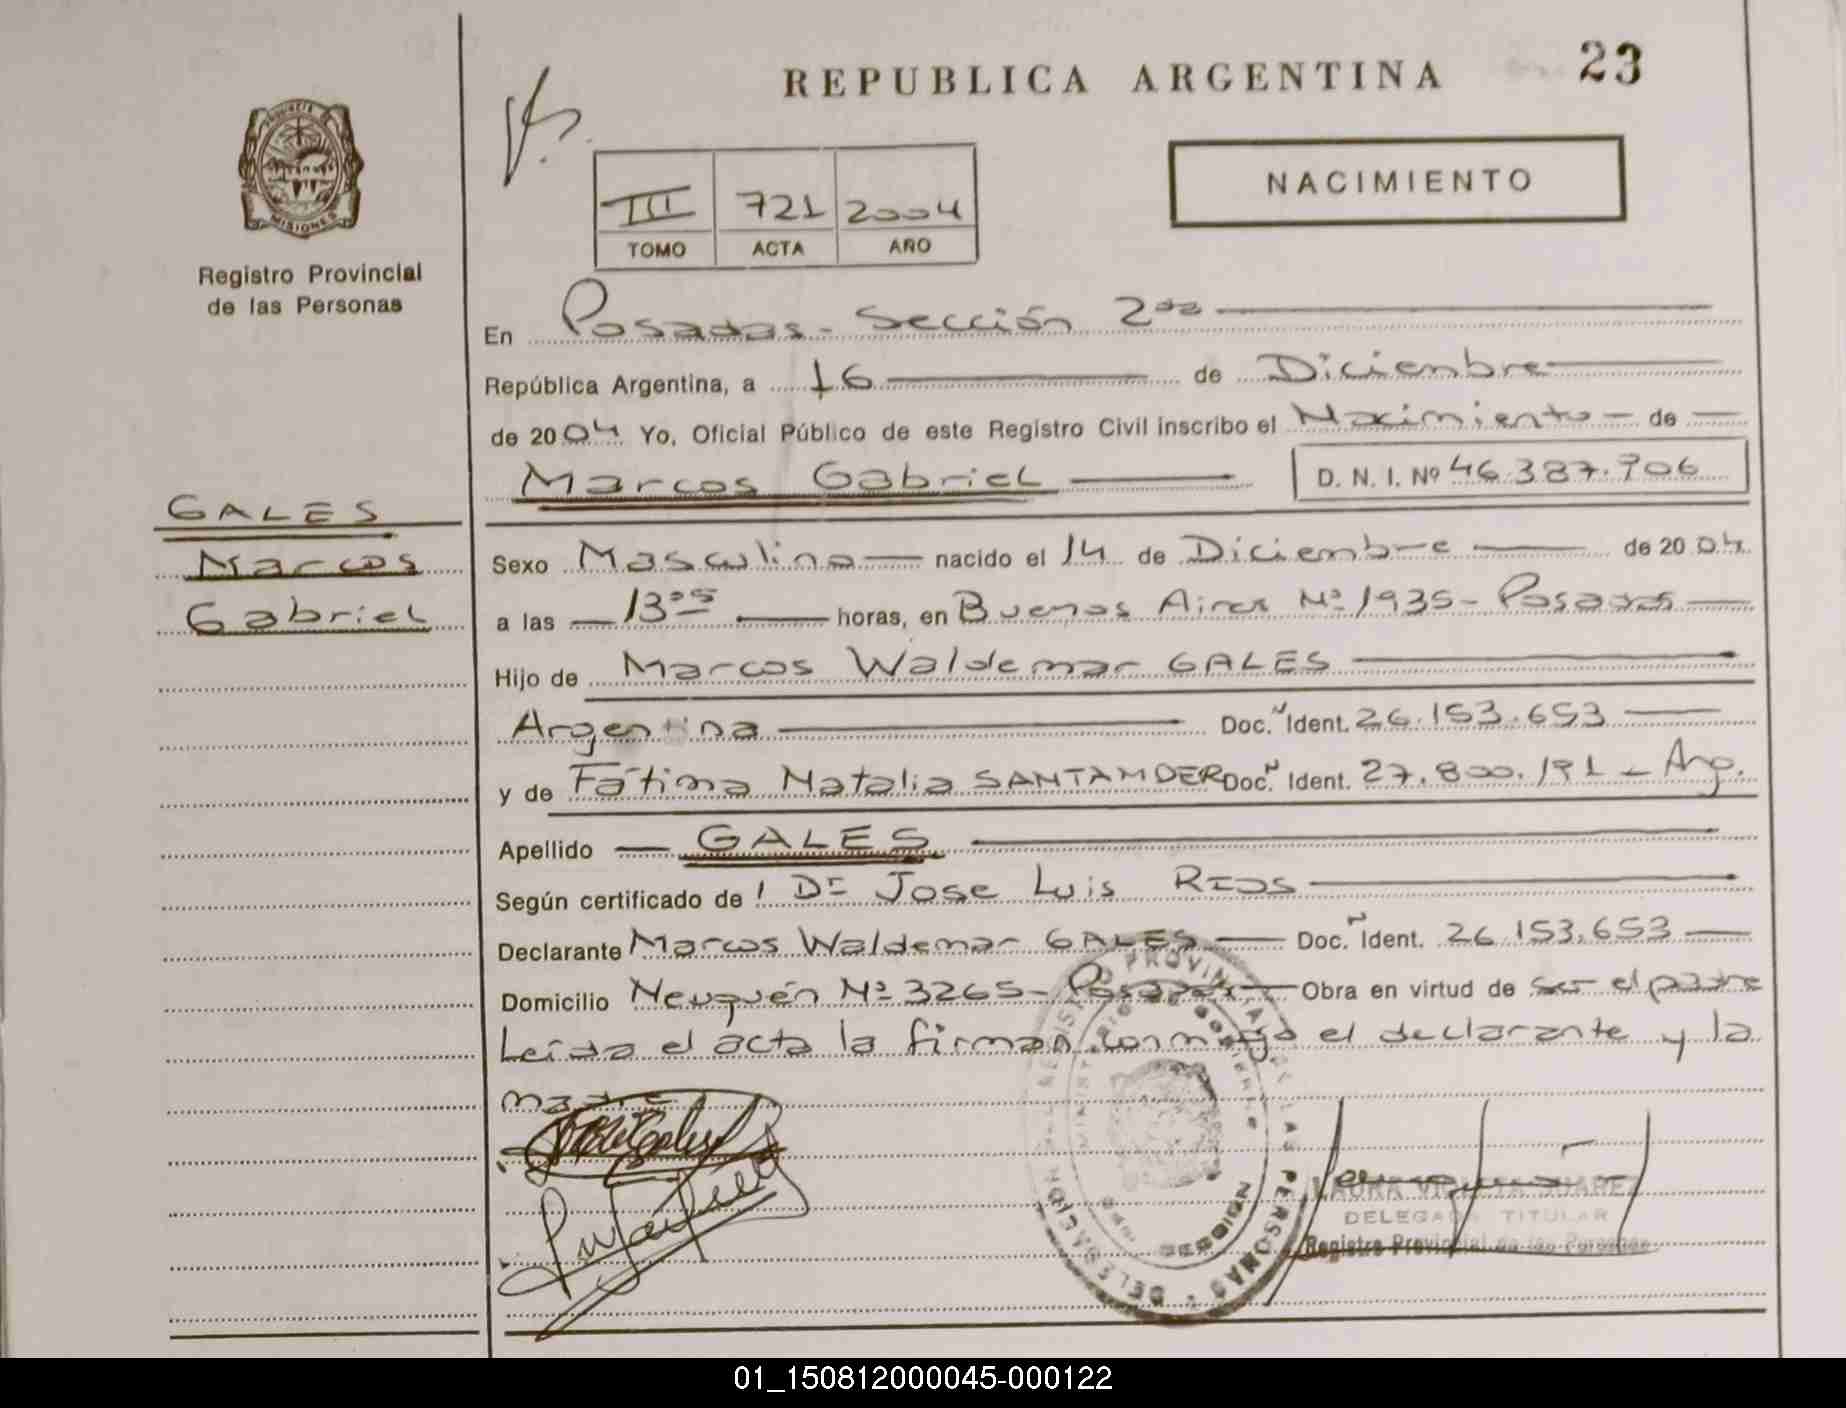 REPUBLICA ARGENTINA
23
PROVINCIA
MISIONES
Registro Provincial
de las Personas
III 721 2004
TOMO ACTA AÑO
NACIMIENTO
En Posadas - Sección 2da
República Argentina, a 16 de Diciembre
de 2004 Yo, Oficial Público de este Registro Civil inscribo el Nacimiento - de
Marcos Gabriel
D. N. I. Nº 46.387.906
GALES
Marcos
Gabriel
Sexo Masculino nacido el 14 de Diciembre de 2004
a las 13 05 horas, en Buenos Aires Nº 1935 - Posadas
Hijo de Marcos Waldemar GALES
Argentina Doc. Ident. 26.153.653
y de Fátima Natalia SANTANDER Doc. Ident. 27.800.191 - Arg.
Apellido GALES
Según certificado de Dr Jose Luis RIOS
Declarante Marcos Waldemar GALES Doc. Ident. 26.153.653
Domicilio Neuquén Nº 3265 - Posadas Obra en virtud de ser el padre
Leída el acta la firman conmigo el declarante y la
madre
LAURA SUAREZ
DELEGADA TITULAR
Registro Provincial de las Personas
01_150812000045-000122